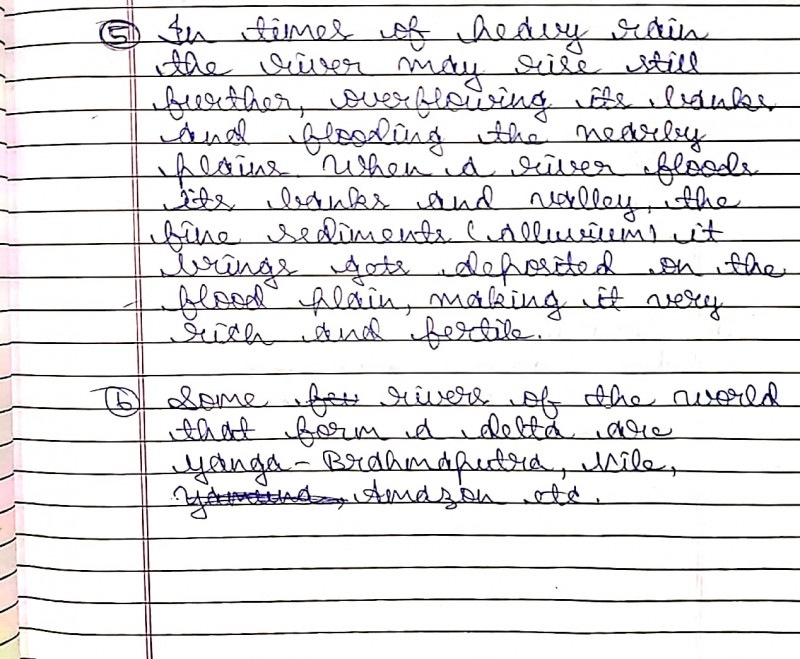 5 In times of heavy rain
the river may rise still
further, overflowing its banks
and flooding the nearby
plains. When a river floods
its banks and valley, the
fine sediments (Alluvium) it
brings gets deposited on the
flood plain, making it very
rich and fertile.
6 Some few rivers of the world
that form a delta are
Ganga - Brahmaputra, Nile,
Yamuna, Amazon etc.